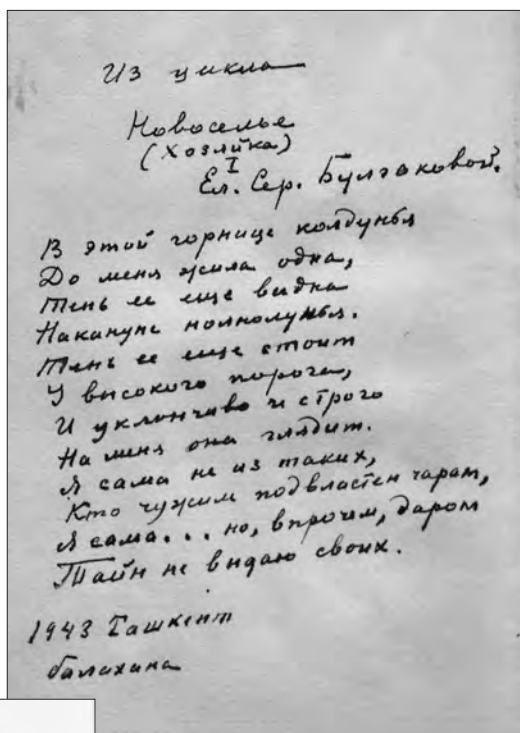 Из цикла
Новоселье
(Хозяйка)
I
Ел. Сер. Булгаковой.
В этой горнице колдунья
До меня жила одна,
Тень ее еще видна
Накануне полнолунья.
Тень ее еще стоит
У высокого порога,
И уклончиво и строго
На меня она глядит.
Я сама не из таких,
Кто чужим подвластен чарам,
Я сама... но, впрочем, даром
Тайн не выдаю своих.
1943 Ташкент
балахана